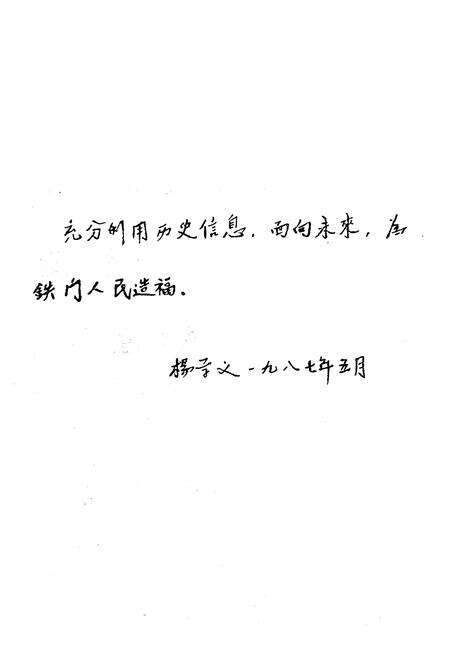 充分利用历史信息，面向未來，为
鉄门人民造福。
楊学文 一九八七年五月